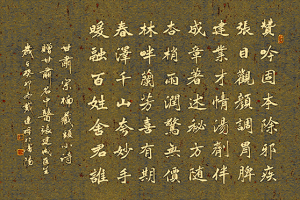 贊吟固本除邪疾
張目觀顏調胃脾
建業才情湯劑伴
成章著述秘方随
杏梢雨潤驚無價
林畔蘭芳喜有期
春澤千山奇妙手
暖融百姓舍君誰
甘肅宗楠藏頭小诗
贈甘肅名中醫張建成医生
歲次癸卯